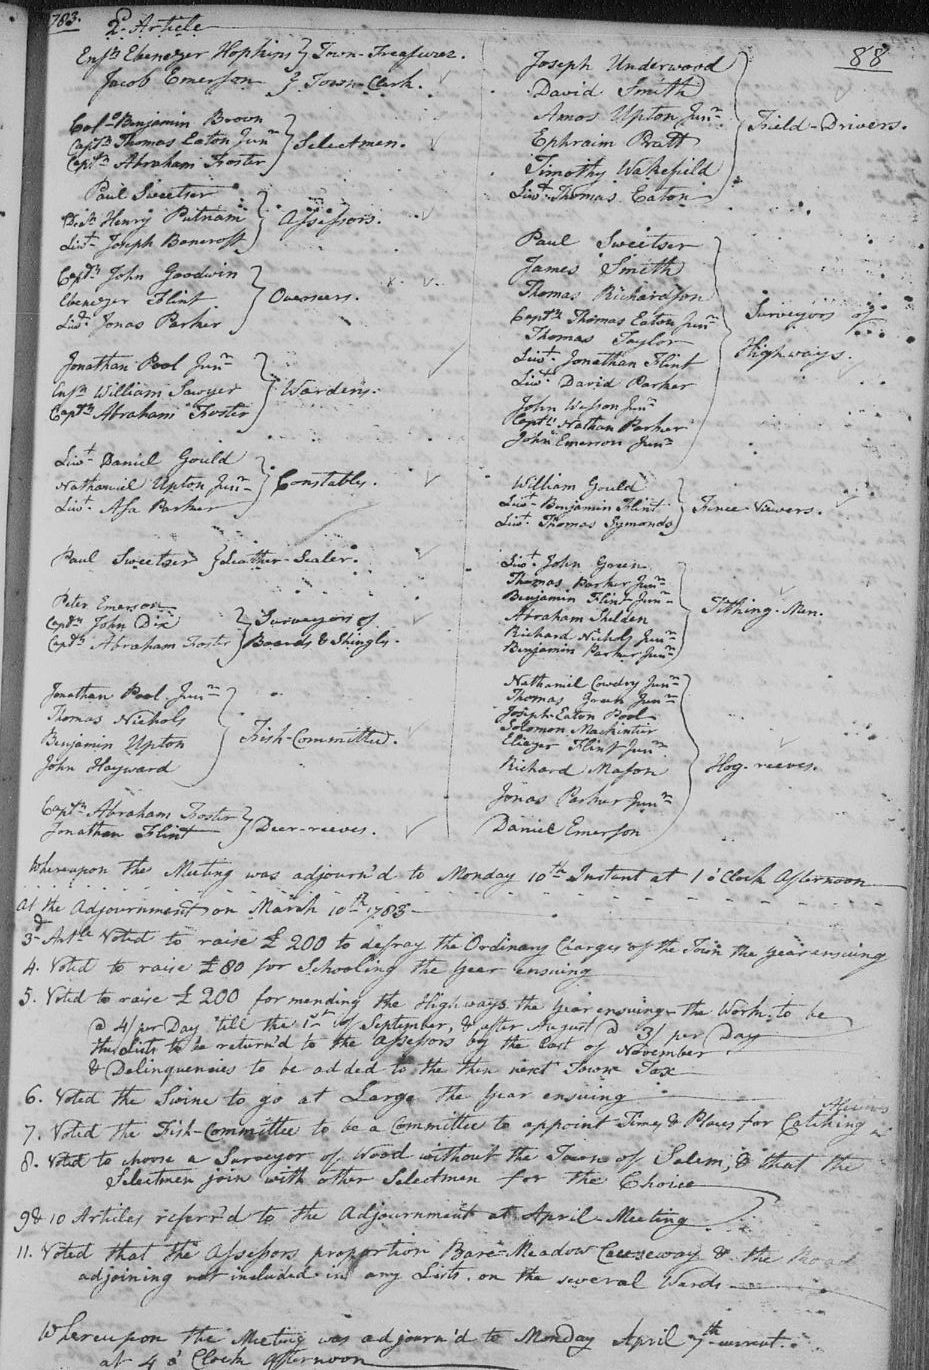 1783.
2d Article
88
Ensn Ebenezer Hopkins } Town-Treasurer.
Jacob Emerson } Town-Clerk.
Colo Benjamin Brown
Captn Thomas Eaton Junr } Selectmen.
Captn Abraham Foster
Paul Sweetser
Deacn Henry Putnam } Assessors.
Lieut Joseph Bancroft
Captn John Goodwin
Ebenezer Flint } Overseers.
Lieut Jonas Parker
Jonathan Pool Junr
Ensn William Sawyer } Wardens.
Captn Abraham Foster
Lieut Daniel Gould
Nathaniel Upton Junr } Constables.
Lieut Asa Parker
Paul Sweetser } Leather-Sealer.
Peter Emerson
Captn John Dix } Surveyors of
Captn Abraham Foster Boards & Shingles.
Jonathan Pool Junr
Thomas Nichols
Benjamin Upton } Fish-Committee.
John Hayward
Captn Abraham Foster
Jonathan Flint } Deer-reeves.
Joseph Underwood
David Smith
Amos Upton Junr } Field-Drivers.
Ephraim Pratt
Timothy Wakefield
Lieut Thomas Eaton
Paul Sweetser
James Smith
Thomas Richardson
Captn Thomas Eaton Junr } Surveyors of
Thomas Taylor
Lieut Jonathan Flint Highways.
Lieut David Parker
John Wesson Junr
Captn Nathan Parker
John Emerson Junr
William Gould
Lieut Benjamin Flint } Fence-Viewers.
Lieut Thomas Symonds
Lieut John Green
Thomas Parker Junr
Benjamin Flint Junr
Abraham Shelden } Tithing-Men.
Richard Nichols Junr
Benjamin Parker Junr
Nathaniel Cowdry Junr
Thomas Green Junr
Joseph Eaton Pool
Solomon Mackintier
Eliezer Flint Junr
Richard Mason } Hog-reeves.
Jonas Parker Junr
Daniel Emerson
Whereupon the Meeting was adjourn'd to Monday 10th Instant at 1 o'Clock Afternoon
At the Adjournment on March 10th 1783
3d Artle Voted to raise £200 to defray the Ordinary Charges of the Town the year ensuing
4. Voted to raise £80 for Schooling the year ensuing
5. Voted to raise £200 for mending the Highways the year ensuing the Work to be
@ 4/ per Day 'till the 1st of September, & after August @ 3/ per Day
the Lists to be return'd to the Assessors by the last of November
& Delinquencies to be added to the then next Town Tax
6. Voted the Swine to go at Large the year ensuing
7. Voted the Fish-Committee to be a Committee to appoint Times & Places for Catching Alewives
8. Voted to choose a Surveyor of Wood without the Town of Salem, & that the
Selectmen join with other Selectmen for the Choice
9 & 10 Articles referr'd to the Adjournment at April-Meeting
11. Voted that the Assessors proportion Bare-Meadow Causeway & the Road
adjoining not included in any Lists on the several Wards
Whereupon the Meeting was adjourn'd to Monday April 7th current.
at 4 o'Clock afternoon